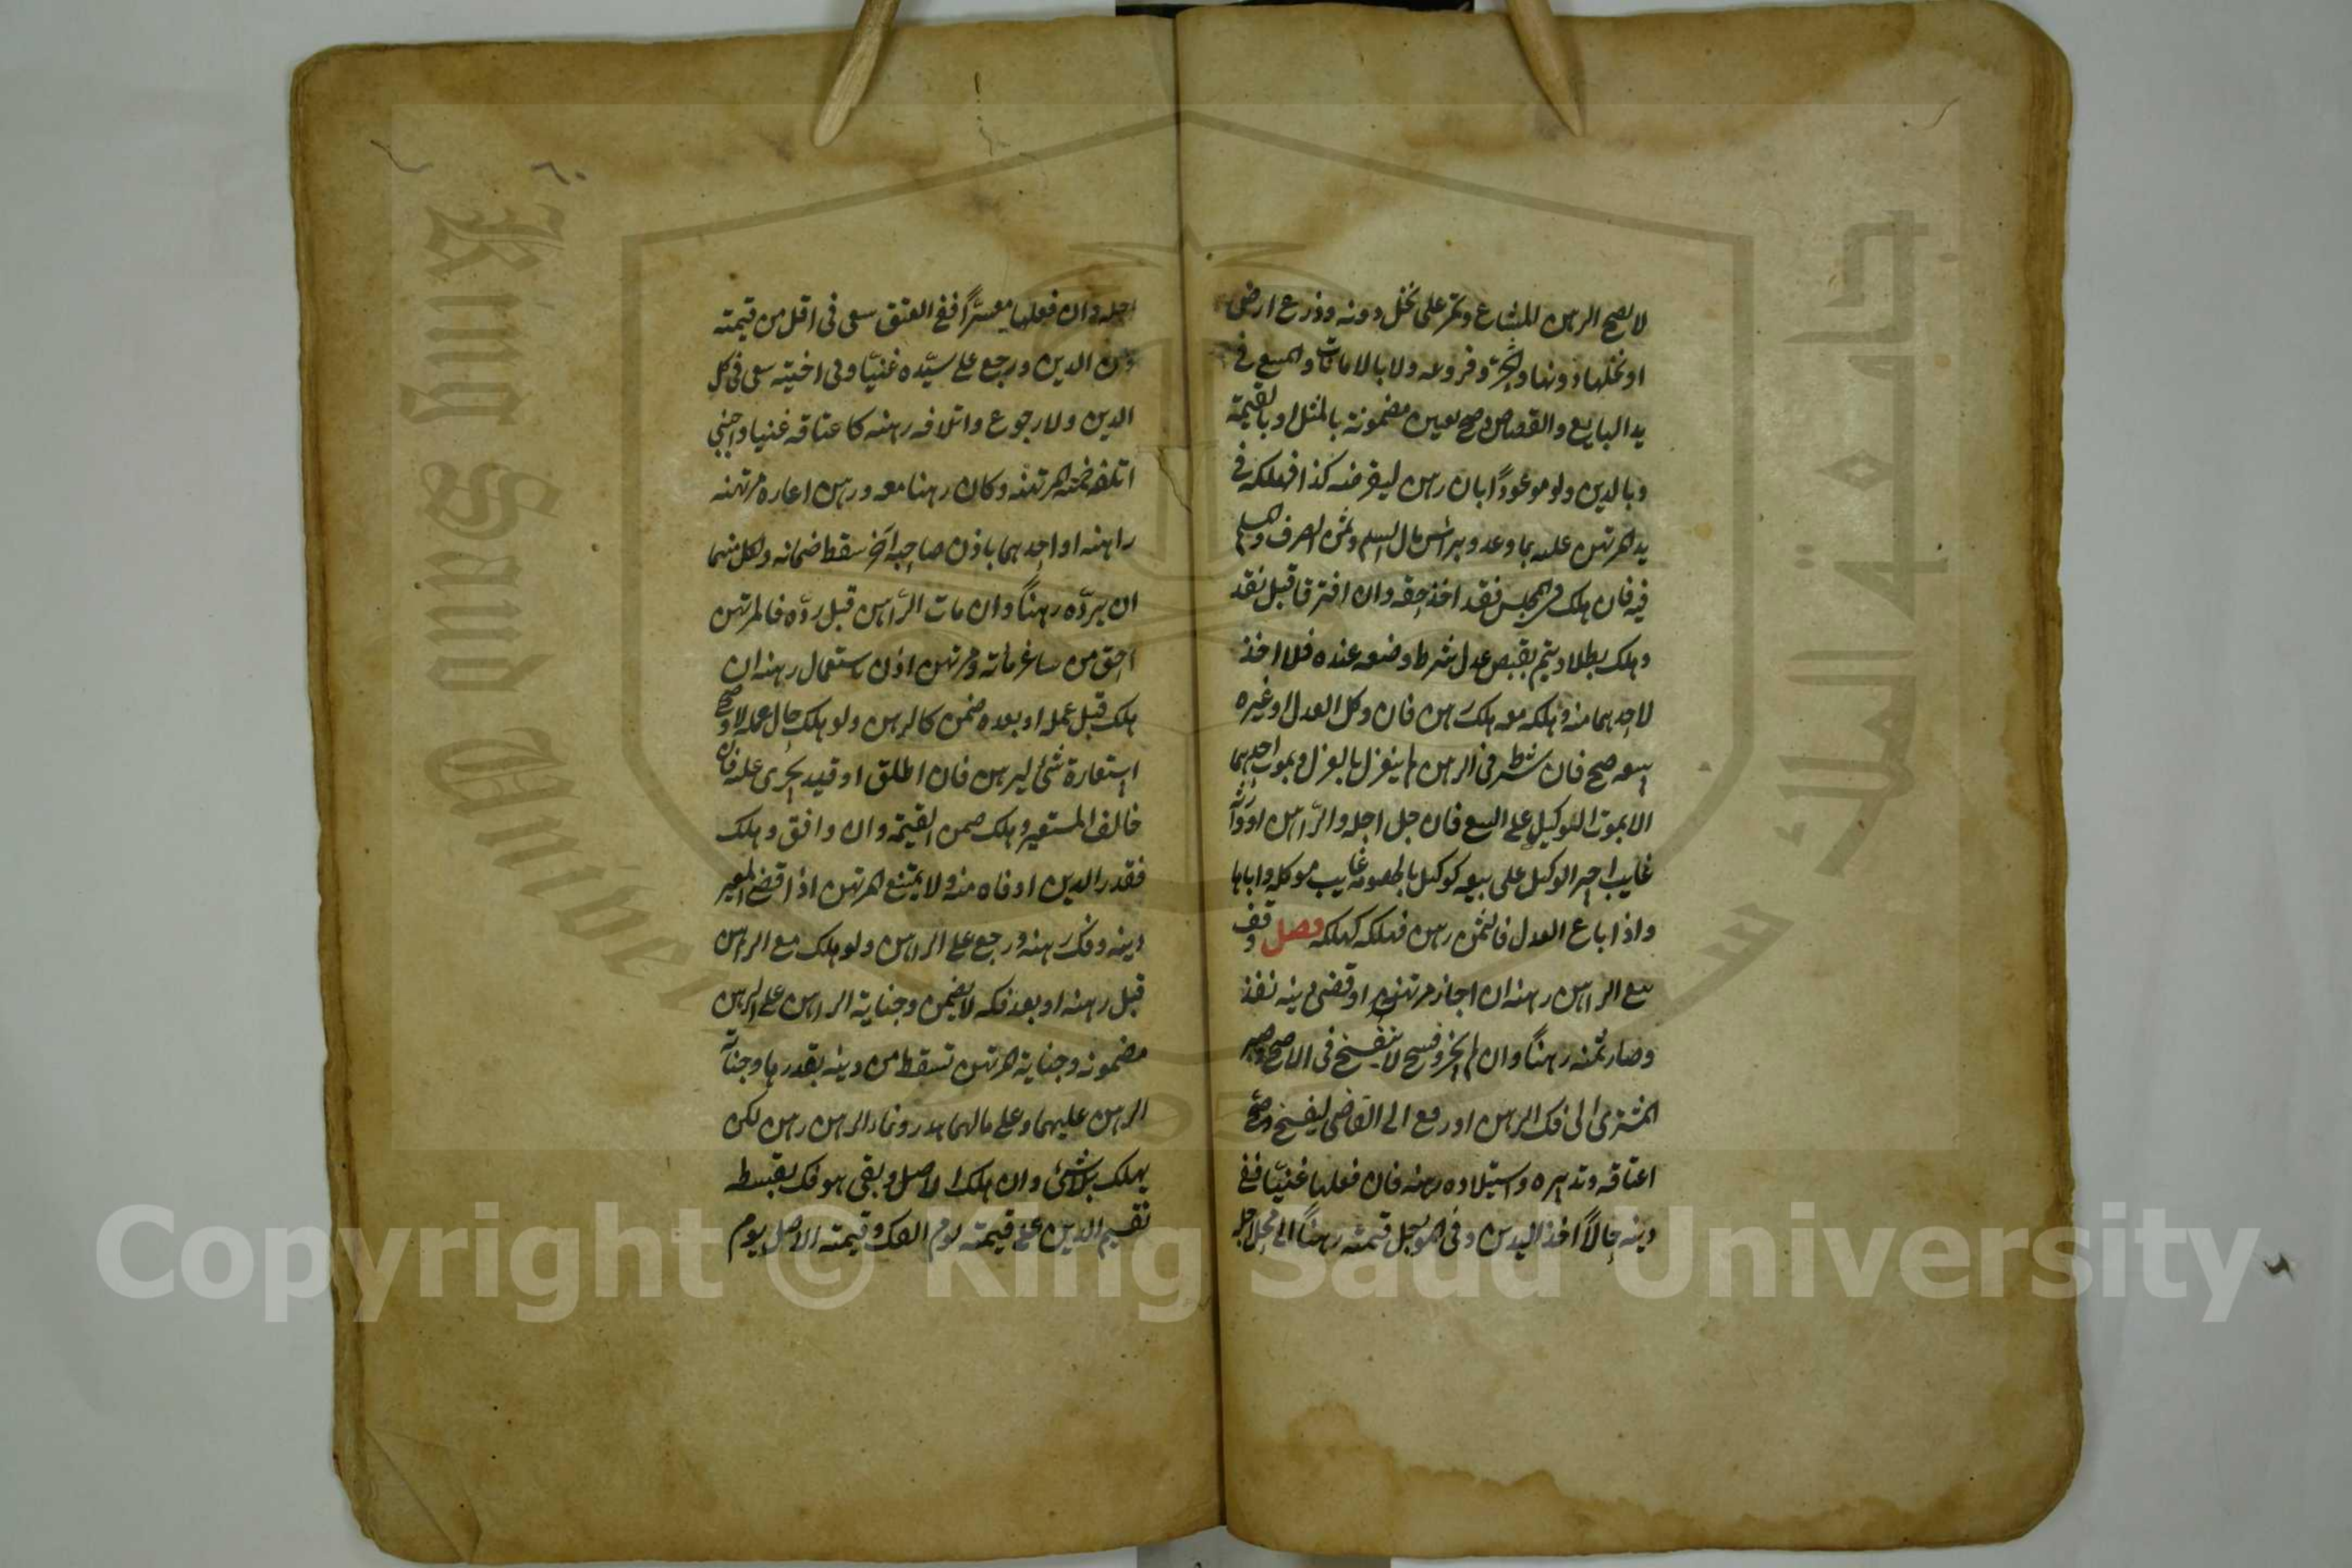 لا يصح الرهن للمشاع وثمر على نخل دونه وزرع ارض
او نخلها دونها والحر وفروعه ولا بالامانات والمبيع في
يد البايع والقصاص وصح بعين مضمونة بالمثل او بالقيمة
وبالدين ولو موعودًا بان رهن ليقرضه كذا فهلكه في
يد المرتهن عليه بما وعد وبراس مال السلم وثمن الصرف والمسلم
فيه فان هلك في المجلس فقد اخذ حقه وان افترقا قبل نقد
وهلك بطلا ويتم بقبض عدل شرط وضعه عنده فلا اخذ
لاحدهما منه وهلكه معه هلك رهن فان وكل العدل او غيره
ببيعه صح فان شرط في الرهن لم ينعزل بالعزل وبموت احدهما
الا بموت الوكيل على البيع فان حل اجله والراهن او وارثه
غايب اجبر الوكيل على بيعه كوكيل بالخصومة غايب موكله واباها
واذا باع العدل فالثمن رهن فهلكه كهلكه فصل وقف
بيع الراهن رهنه ان اجاز مرتهنه او قضى دينه نفذ
وصار ثمنه رهنًا وان لم يجز وفسخ لا ينفسخ في الاصح وصبر
المشترى الى فك الرهن او رفع الى القاضى ليفسخ وصح
اعتاقه وتدبيره واستيلاده رهنه فان فعلها غنيًا ففي
دينه حالًا اخذ الدين وفي المؤجل قيمته رهنًا الى محل اجله
اجله وان فعلها معسرًا ففي العتق سعى في اقل من قيمته
ومن الدين ورجع على سيّده غنيًّا وفي اختيه سعى في كل
الدين ولا رجوع واتلافه رهنه كاعتاقه غنيا واجنبي
اتلفه ضمنه المرتهنه وكان رهنا معه ورهن اعاره مرتهنه
راهنه او احدهما باذن صاحبه آخر سقط ضمانه ولكل منهما
ان يردّه رهنًا وان مات الرّاهن قبل ردّه فالمرتهن
احق من سائر غرمائه ومرتهن اذن باستعمال رهنه ان
هلك قبل عمله او بعده ضمن كالرهن ولو هلك حال عمله لا وصح
استعارة شئ ليرهن فان اطلق او قيد يجرى عليه فان
خالف المستعير وهلك ضمن القيمة وان وافق وهلك
فقدر الدين اوفاه منه ولا يمتنع المرتهن اذا قضى المعير
دينه وفك رهنه ورجع على الراهن ولو هلك مع الراهن
قبل رهنه او بعد فكه لا يضمن وجناية الراهن على الرهن
مضمونه وجناية المرتهن تسقط من دينه بقدرها وجناية
الرهن عليهما وعلى مالهما هدر ونماء الرهن رهن لكن
يهلك بلا شئ وان هلك الاصل وبقى هو فك بقسطه
تقسيم الدين على قيمته يوم الفك وقيمته الاصل يوم
٦٠
King Saud University
جامعة الملك سعود
Copyright © King Saud University